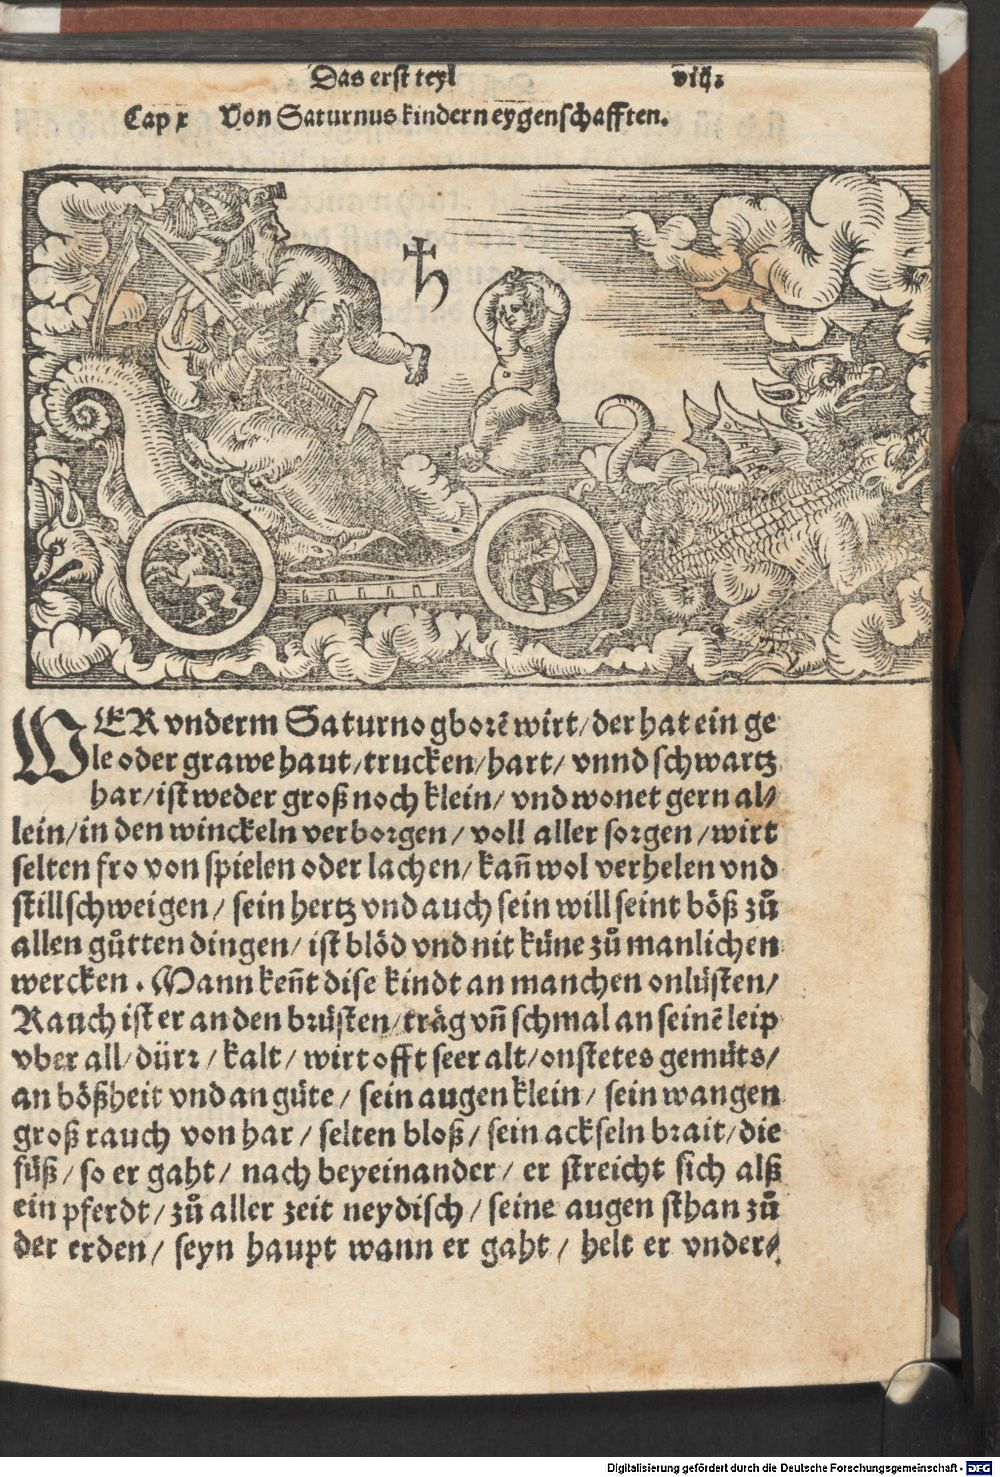 Das erst teyl viij.
Cap x Von Saturnus kindern eygenschafften.
♄
WER vnderm Saturno gborẽ wirt/ der hat ein ge
le oder grawe haut/ trucken/ hart/ vnnd schwartz
har/ ist weder groß noch klein/ vnd wonet gern al⸗
lein/ in den winckeln verborgen/ voll aller sorgen/ wirt
selten fro von spielen oder lachen/ kañ wol verhelen vnd
stillschweigen/ sein hertz vnd auch sein will seint böß zů
allen gůtten dingen/ ist blöd vnd nit küne zů manlichen
wercken. Mann keñt dise kindt an manchen onlüsten/
Rauch ist er an den brüsten/ träg vñ schmal an seinẽ leip
vber all/ dürr/ kalt/ wirt offt seer alt/ onstetes gemüts/
an bößheit vnd an güte/ sein augen klein/ sein wangen
groß rauch von har/ selten bloß/ sein ackseln brait/ die
füß/ so er gaht/ nach beyeinander/ er streicht sich alß
ein pferdt/ zů aller zeit neydisch/ seine augen sthan zů
der erden/ seyn haupt wann er gaht/ helt er vnder⸗
Digitalisierung gefördert durch die Deutsche Forschungsgemeinschaft - DFG